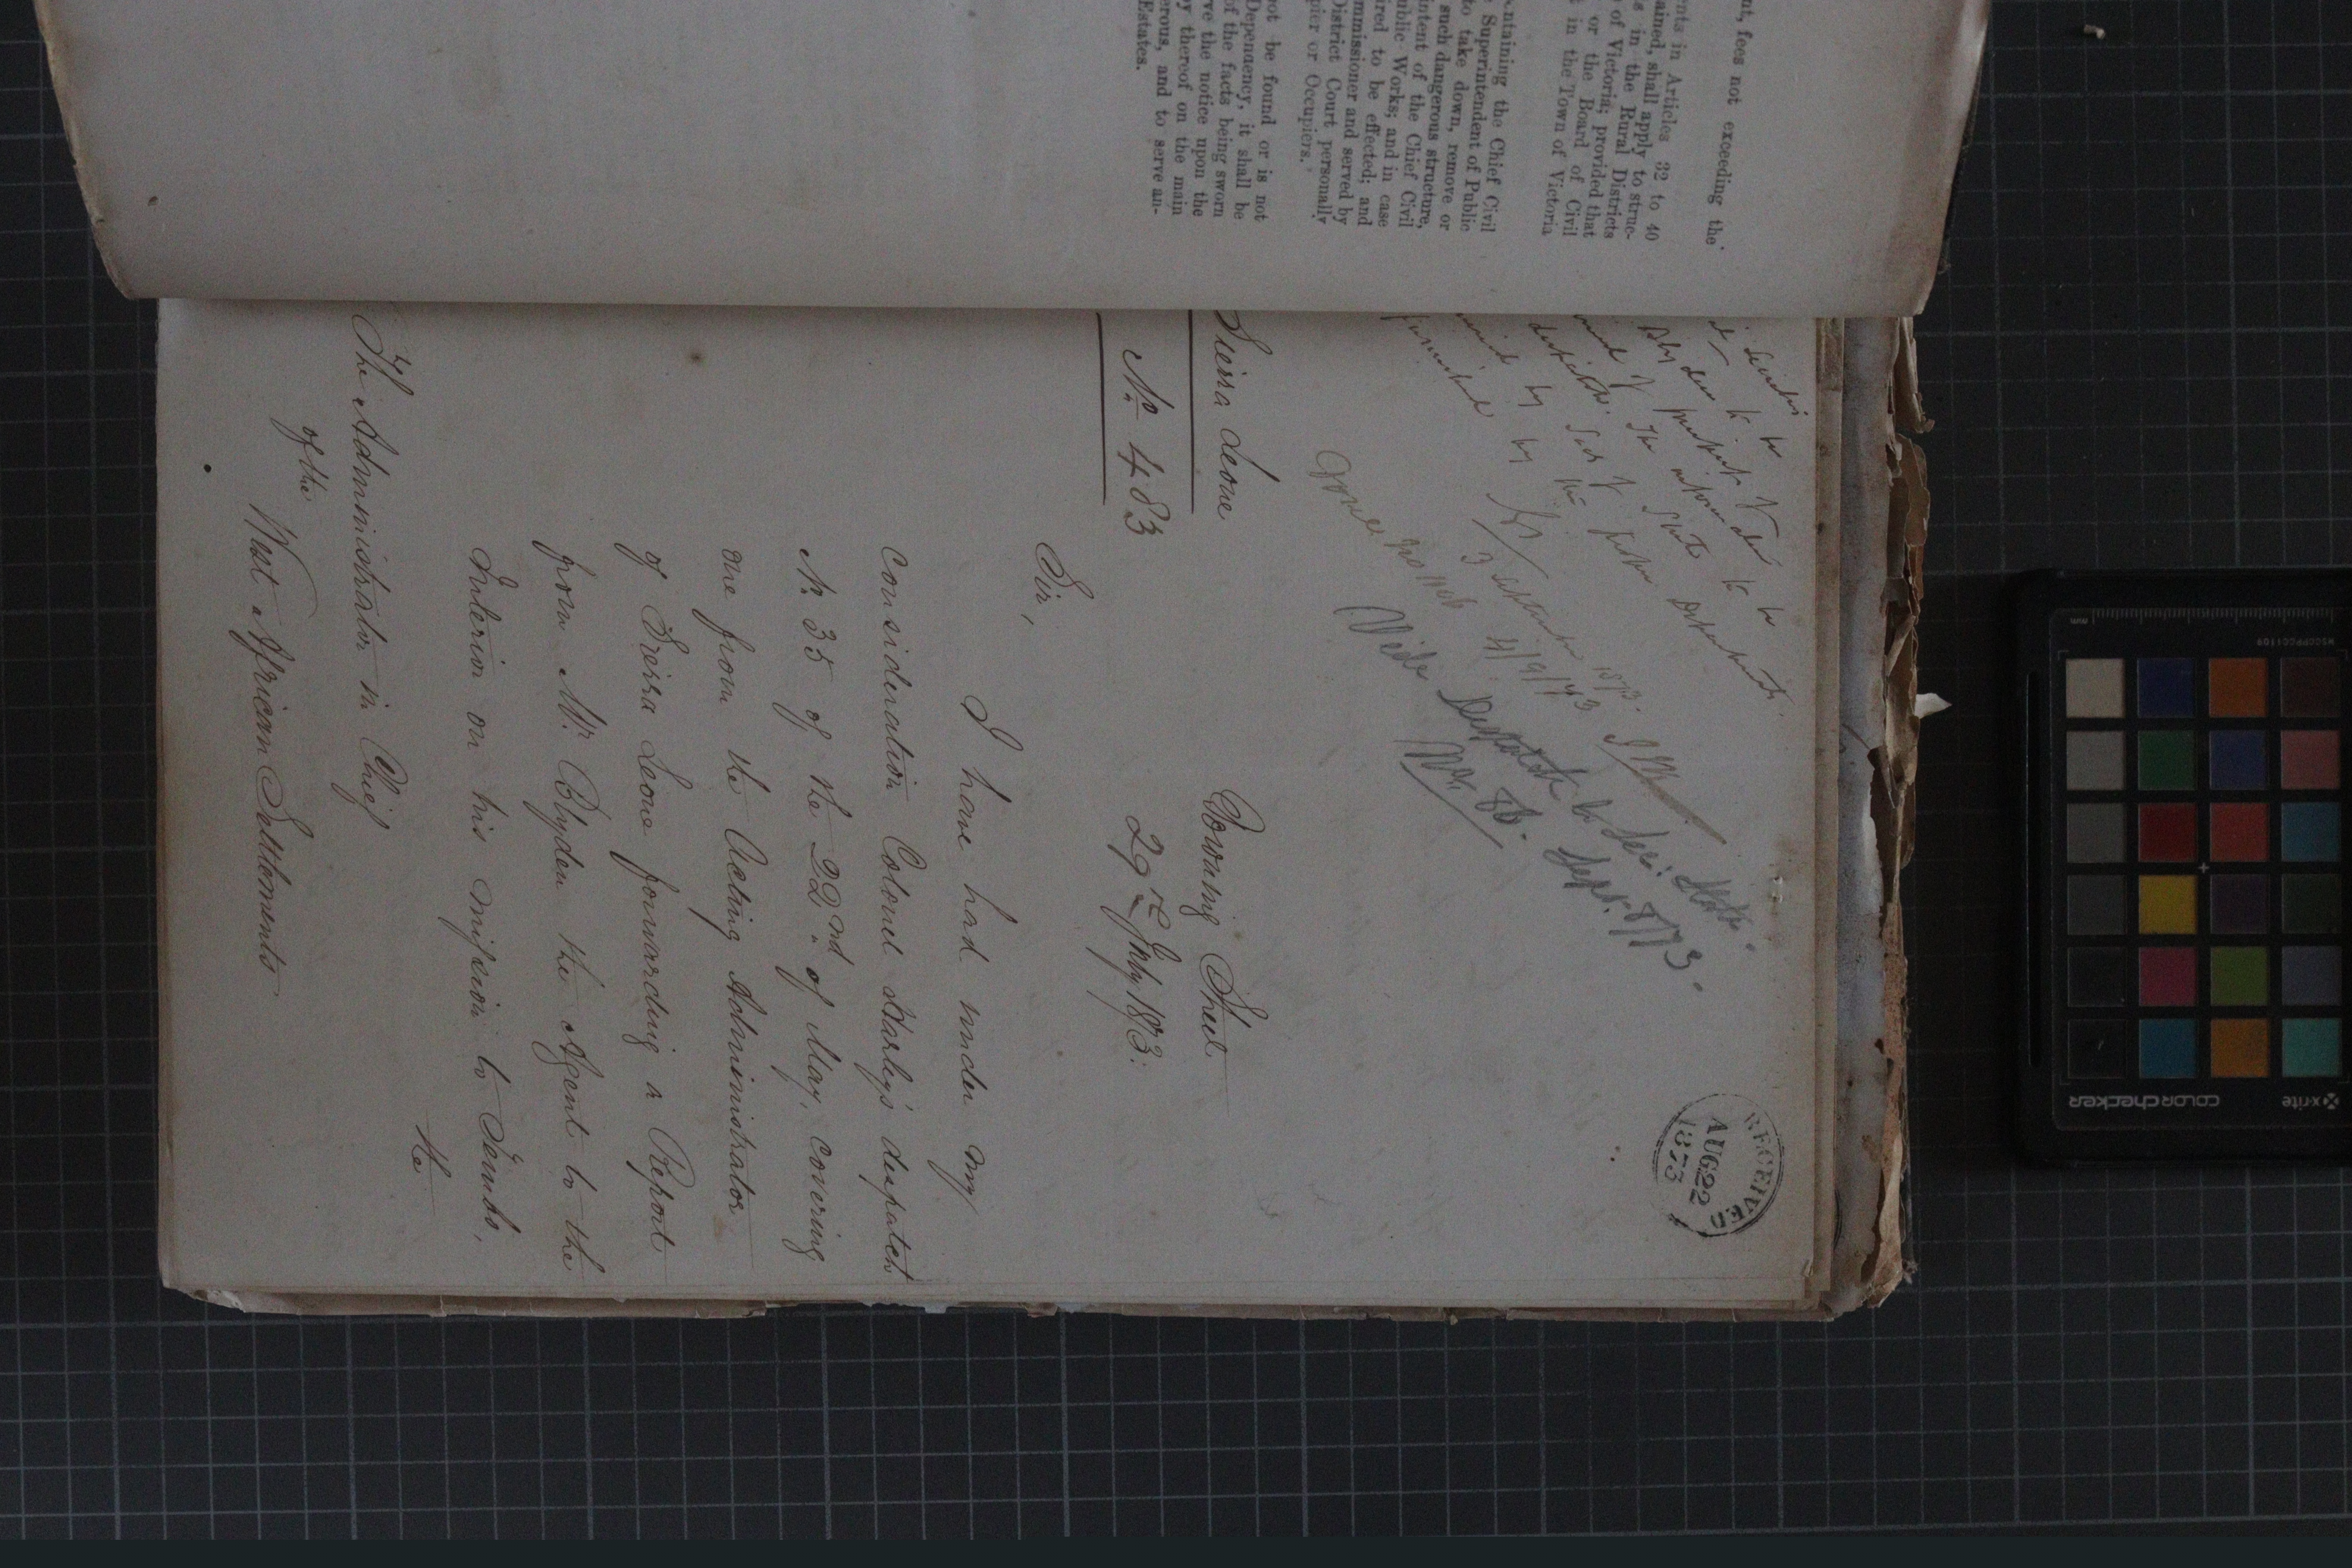 nt, fees not exceeding the
nts in Articles 32 to 40
ained, shall apply to struc-
s in the Rural Districts
of Victoria; provided that
or the Board of Civil
in the Town of Victoria
ntaining the Chief Civil
Superintendent of Public
to take down, remove or
such dangerous structure,
intent of the Chief Civil
ublic Works; and in case
ired to be effected; and
mmissioner and served by
District Court personally
pier or Occupiers.
ot be found or is not
Dependency, it shall be
of the facts being sworn
ve the notice upon the
py thereof on the main
erous, and to serve an-
Estates.
RECEIVED
AUG 22
1873
3 September 1873.
4/9/73
Vide Despatch to Sec: State.
No. 86. Sept. 8/73.
Sierra Leone
No. 483
Downing Street
29th July 1873.
Sir,
I have had under my
consideration Colonel Harley's despatch
No. 35 of the 22nd. of May, covering
one from the Acting Administrator
of Sierra Leone forwarding a Report
from Mr. Blyden the Agent to the
Interior on his mission to Timbo,
the
The Administrator in Chief
of the
West African Settlements